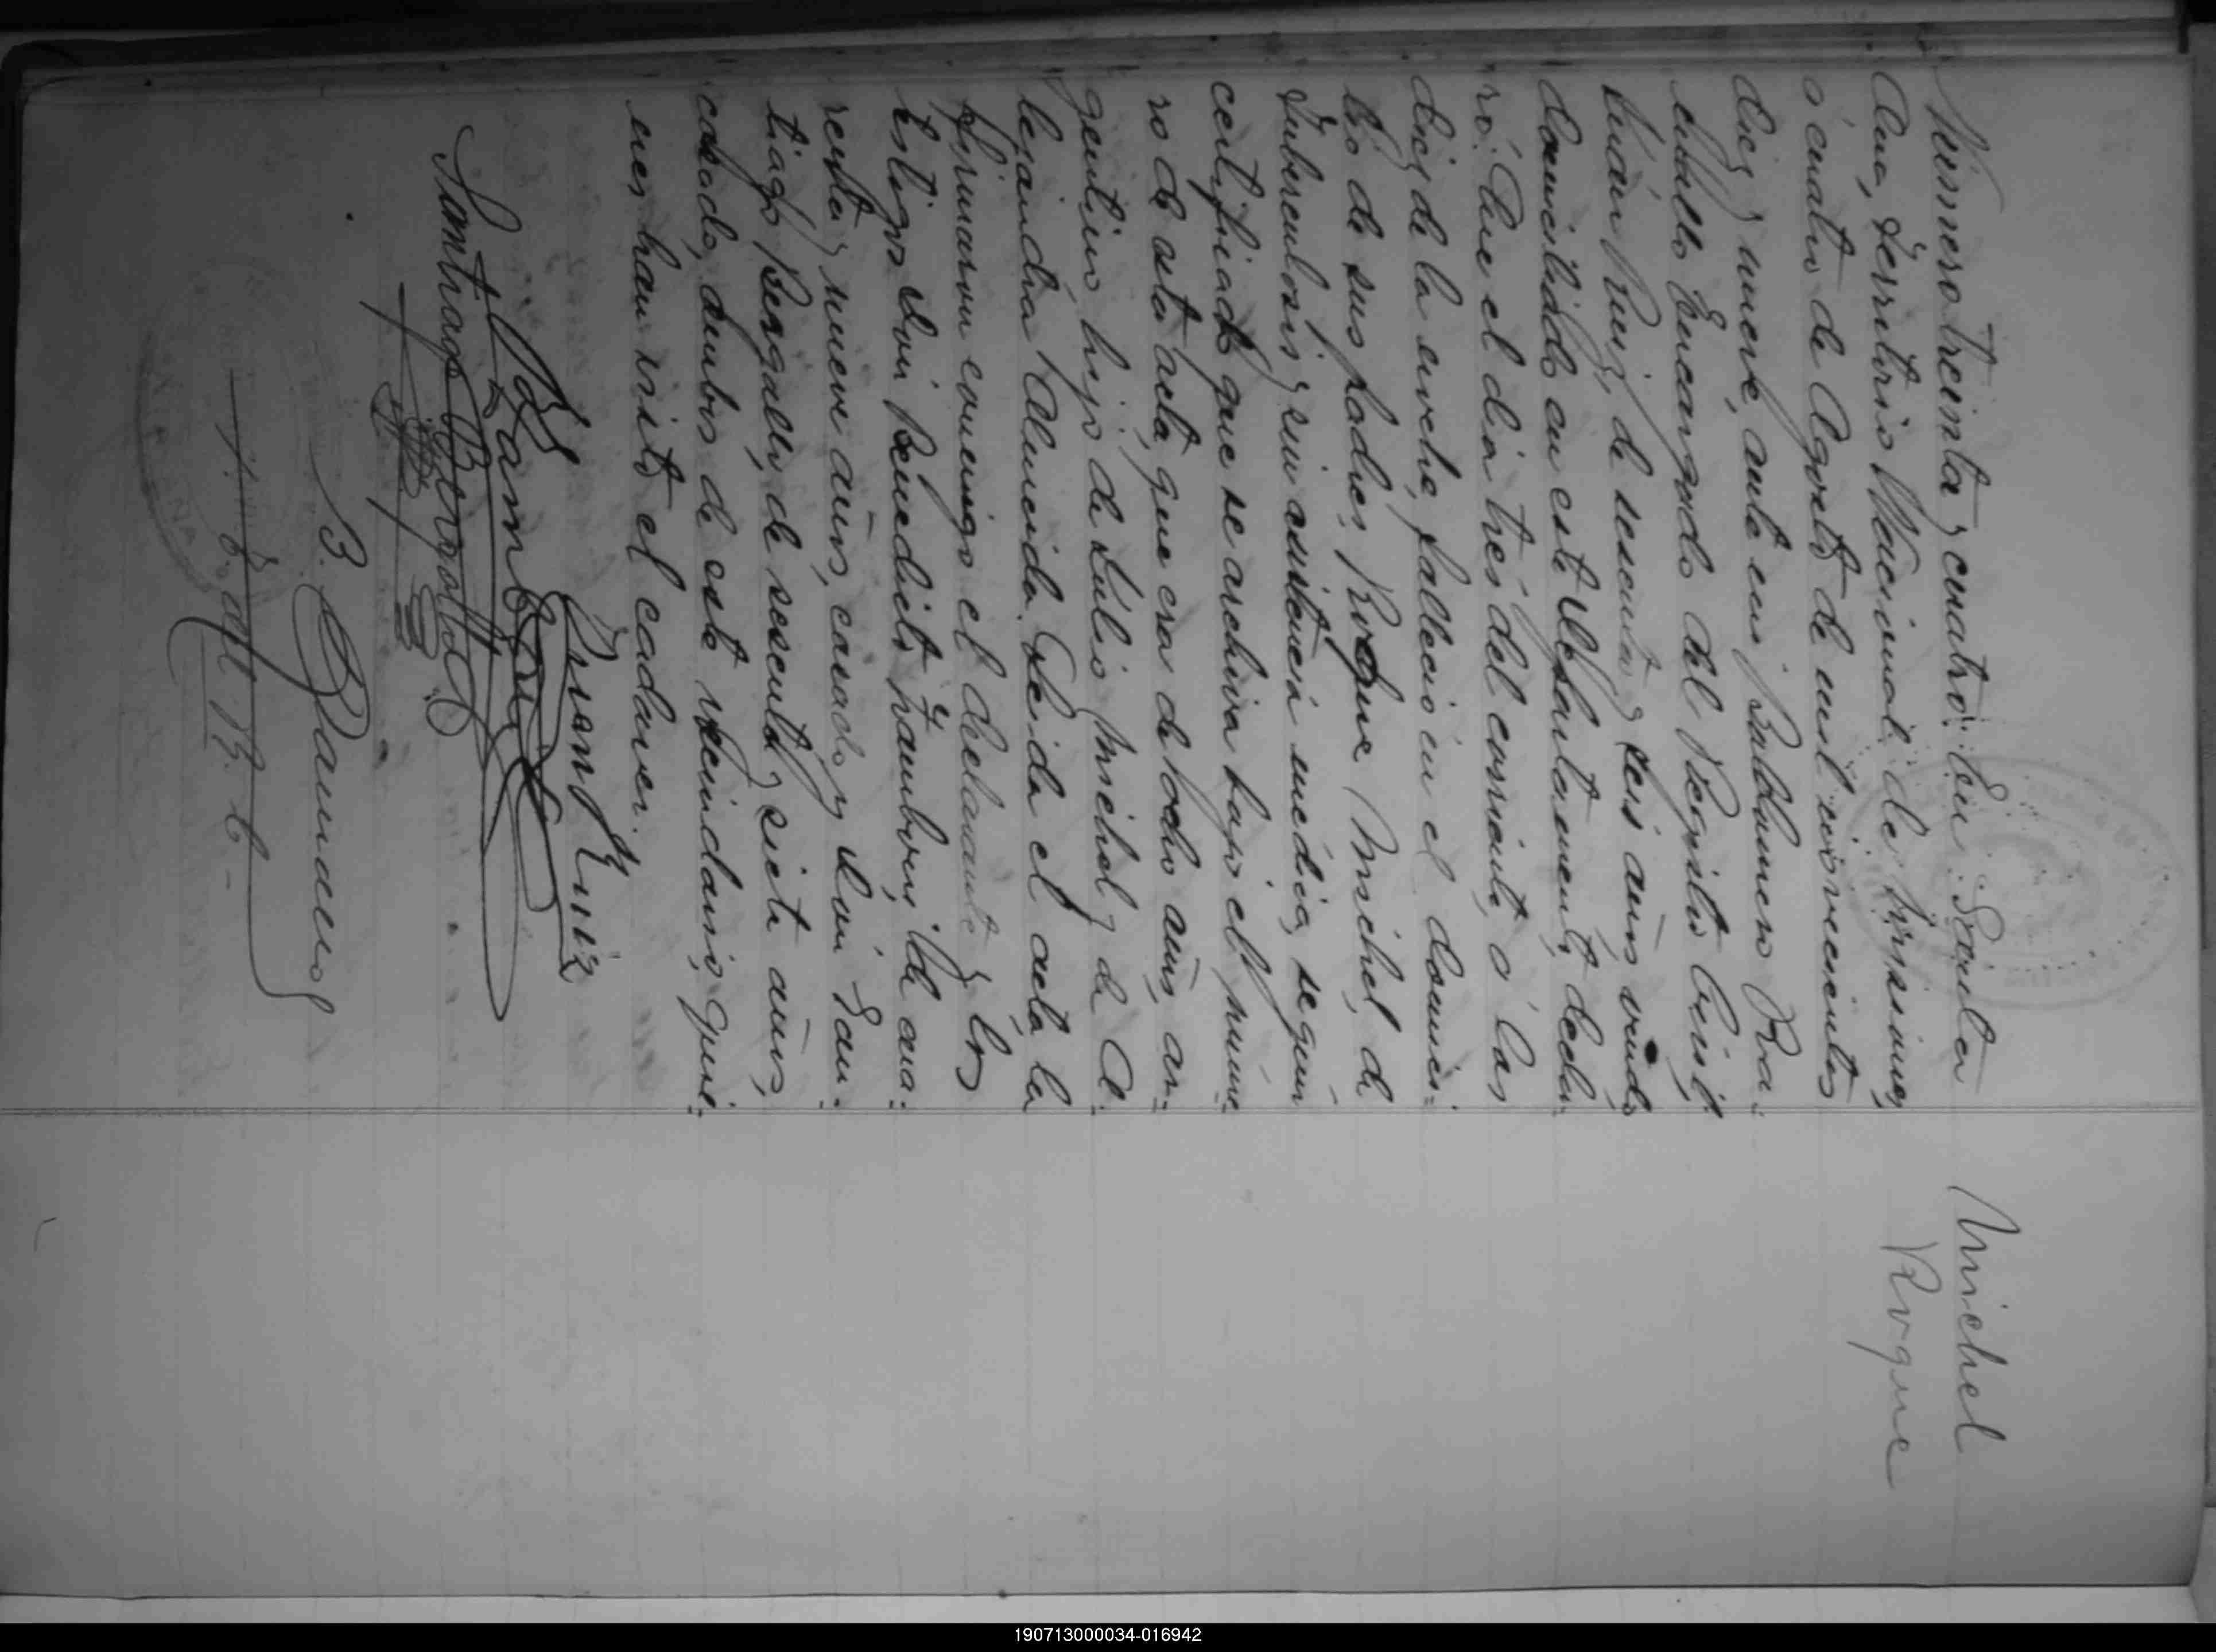 Michel
Roque
Número treinta y cuatro: En Santa
Ana, Territorio Nacional de Misiones,
á cuatro de Agosto de mil novecientos
diez y nueve, ante mi
Encargado del Registro Civil,
Ruiz, de sesenta y seis años, viudo
domiciliado en este Departamento, decla-
ró: Que el dia tres del corriente, á las
diez de la noche, falleció en el domici-
lio de sus padres, Roque Michel, de
Tuberculosis y sin asistencia médica, segun
certificado que se archiva bajo el núme-
ro de esta acta, que era de ocho años, ar-
gentino, hijo de Julio Michel y de A-
lejandra Almeida. Leida el acta la
firmaron conmigo el declarante y los
testigos Don Benedicto Zamboni, de cua-
renta y nueve años, casado y Don San-
tiago Bergallo, de sesenta y siete años,
casado, ambos de este vecindario, quie-
nes han visto el cadaver.
Juan Ruiz
Santiago Bergallo
190713000034-016942